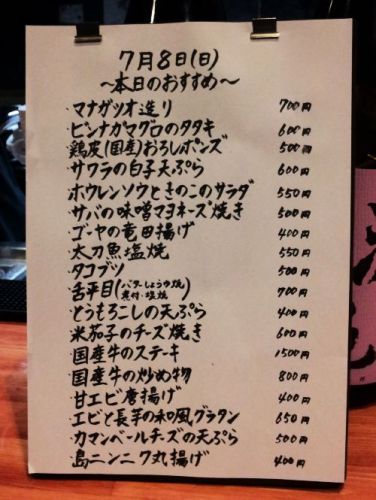 7月8日(日)
～本日のおすすめ～
・マナガツオ造り 700円
・ビンナガマグロのタタキ 600円
・鶏皮(国産)おろしポンズ 500円
・サワラの白子天ぷら 600円
・ホウレンソウときのこのサラダ 550円
・サバの味噌マヨネーズ焼き 500円
・ゴーヤの竜田揚げ 400円
・太刀魚塩焼 550円
・タコブツ 500円
・舌平目(バターしょうゆ焼 煮付・塩焼) 700円
・とうもろこしの天ぷら 400円
・米茄子のチーズ焼き 600円
・国産牛のステーキ 1500円
・国産牛の炒め物 800円
・甘エビ唐揚げ 400円
・エビと長芋の和風グラタン 650円
・カマンベールチーズの天ぷら 500円
・島ニンニク丸揚げ 400円